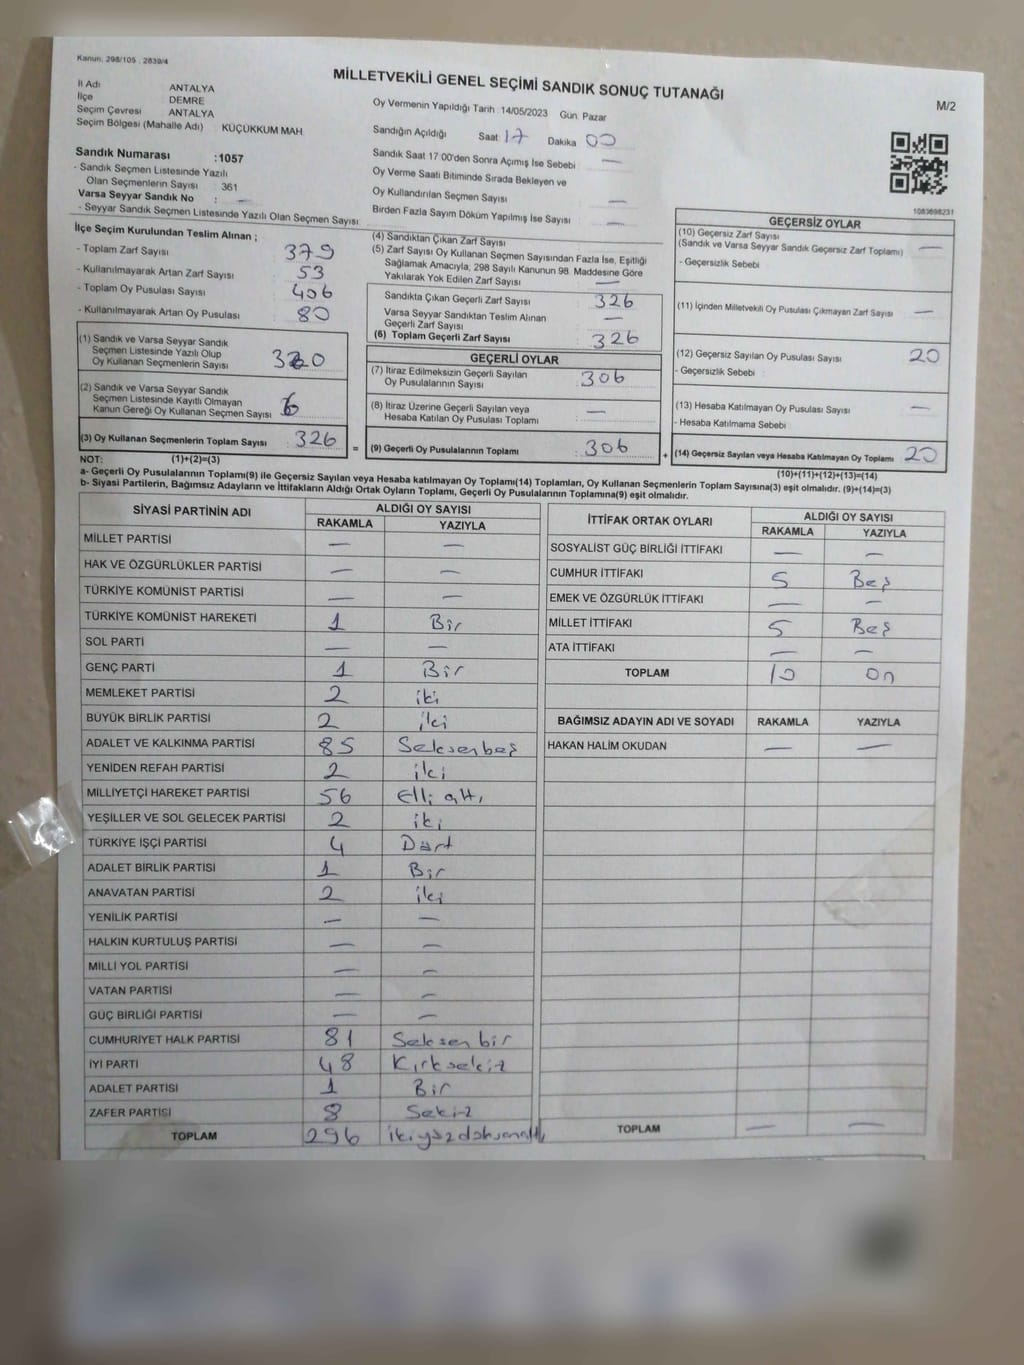 Kanun: 298/105 , 2839/4
MİLLETVEKİLİ GENEL SEÇİMİ SANDIK SONUÇ TUTANAĞI
M/2
İl Adı ANTALYA
İlçe DEMRE
Seçim Çevresi ANTALYA
Seçim Bölgesi (Mahalle Adı) KÜÇÜKKUM MAH.
Oy Vermenin Yapıldığı Tarih :14/05/2023 Gün: Pazar
Sandığın Açıldığı Saat 17 Dakika 00
Sandık Saat 17 00'den Sonra Açımış İse Sebebi —
Oy Verme Saati Bitiminde Sırada Bekleyen ve
Oy Kullandırılan Seçmen Sayısı —
Birden Fazla Sayım Döküm Yapılmış İse Sayısı —
Sandık Numarası :1057
- Sandık Seçmen Listesinde Yazılı
Olan Seçmenlerin Sayısı : 361
Varsa Seyyar Sandık No : —
- Seyyar Sandık Seçmen Listesinde Yazılı Olan Seçmen Sayısı
1083698231
İlçe Seçim Kurulundan Teslim Alınan ;
- Toplam Zarf Sayısı 379
- Kullanılmayarak Artan Zarf Sayısı 53
- Toplam Oy Pusulası Sayısı 406
- Kullanılmayarak Artan Oy Pusulası 80
(1) Sandık ve Varsa Seyyar Sandık
Seçmen Listesinde Yazılı Olup
Oy Kullanan Seçmenlerin Sayısı 320
(2) Sandık ve Varsa Seyyar Sandık
Seçmen Listesinde Kayıtlı Olmayan
Kanun Gereği Oy Kullanan Seçmen Sayısı 6
(3) Oy Kullanan Seçmenlerin Toplam Sayısı 326
(4) Sandıktan Çıkan Zarf Sayısı
(5) Zarf Sayısı Oy Kullanan Seçmen Sayısından Fazla İse, Eşitliği
Sağlamak Amacıyla; 298 Sayılı Kanunun 98. Maddesine Göre
Yakılarak Yok Edilen Zarf Sayısı —
Sandıkta Çıkan Geçerli Zarf Sayısı 326
Varsa Seyyar Sandıktan Teslim Alınan
Geçerli Zarf Sayısı —
(6) Toplam Geçerli Zarf Sayısı 326
GEÇERLİ OYLAR
(7) İtiraz Edilmeksizin Geçerli Sayılan
Oy Pusulalarının Sayısı 306
(8) İtiraz Üzerine Geçerli Sayılan veya
Hesaba Katılan Oy Pusulası Toplamı —
= (9) Geçerli Oy Pusulalarının Toplamı 306 +
GEÇERSİZ OYLAR
(10) Geçersiz Zarf Sayısı
(Sandık ve Varsa Seyyar Sandık Geçersiz Zarf Toplamı) —
- Geçersizlik Sebebi
(11) İçinden Milletvekili Oy Pusulası Çıkmayan Zarf Sayısı —
(12) Geçersiz Sayılan Oy Pusulası Sayısı 20
- Geçersizlik Sebebi :
(13) Hesaba Katılmayan Oy Pusulası Sayısı —
- Hesaba Katılmama Sebebi
(14) Geçersiz Sayılan veya Hesaba Katılmayan Oy Toplamı 20
NOT: (1)+(2)=(3) (10)+(11)+(12)+(13)=(14)
a- Geçerli Oy Pusulalarının Toplamı(9) ile Geçersiz Sayılan veya Hesaba katılmayan Oy Toplamı(14) Toplamları, Oy Kullanan Seçmenlerin Toplam Sayısına(3) eşit olmalıdır. (9)+(14)=(3)
b- Siyasi Partilerin, Bağımsız Adayların ve İttifakların Aldığı Ortak Oyların Toplamı, Geçerli Oy Pusulalarının Toplamına(9) eşit olmalıdır.
SİYASİ PARTİNİN ADI ALDIĞI OY SAYISI
RAKAMLA YAZIYLA
MİLLET PARTİSİ — —
HAK VE ÖZGÜRLÜKLER PARTİSİ — —
TÜRKİYE KOMÜNİST PARTİSİ — —
TÜRKİYE KOMÜNİST HAREKETİ 1 Bir
SOL PARTİ — —
GENÇ PARTİ 1 Bir
MEMLEKET PARTİSİ 2 iki
BÜYÜK BİRLİK PARTİSİ 2 iki
ADALET VE KALKINMA PARTİSİ 85 Seksenbeş
YENİDEN REFAH PARTİSİ 2 iki
MİLLİYETÇİ HAREKET PARTİSİ 56 Elli altı
YEŞİLLER VE SOL GELECEK PARTİSİ 2 iki
TÜRKİYE İŞÇİ PARTİSİ 4 Dört
ADALET BİRLİK PARTİSİ 1 Bir
ANAVATAN PARTİSİ 2 iki
YENİLİK PARTİSİ — —
HALKIN KURTULUŞ PARTİSİ — —
MİLLİ YOL PARTİSİ — —
VATAN PARTİSİ — —
GÜÇ BİRLİĞİ PARTİSİ — —
CUMHURİYET HALK PARTİSİ 81 Seksen bir
İYİ PARTİ 48 Kırk sekiz
ADALET PARTİSİ 1 Bir
ZAFER PARTİSİ 8 Sekiz
TOPLAM 296 ikiyüzdoksanaltı
İTTİFAK ORTAK OYLARI ALDIĞI OY SAYISI
RAKAMLA YAZIYLA
SOSYALİST GÜÇ BİRLİĞİ İTTİFAKI — —
CUMHUR İTTİFAKI 5 Beş
EMEK VE ÖZGÜRLÜK İTTİFAKI — —
MİLLET İTTİFAKI 5 Beş
ATA İTTİFAKI — —
TOPLAM 10 On
BAĞIMSIZ ADAYIN ADI VE SOYADI RAKAMLA YAZIYLA
HAKAN HALİM OKUDAN — —
TOPLAM — —